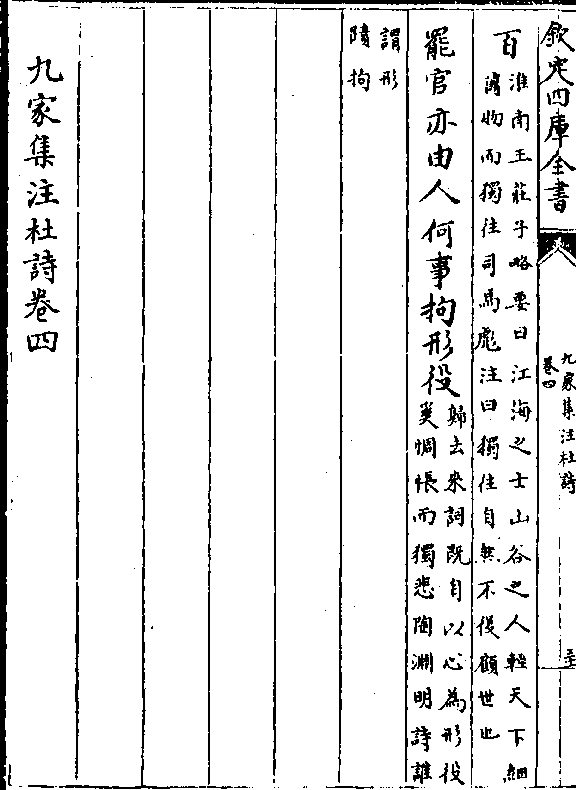 欽定四庫全書
九家集注杜詩
卷四
百
淮南王莊子略要曰江海之士山谷之人輕天下細
萬物而獨往司馬彪注曰獨往自然不復顧世也
罷官亦由人何事拘形役
歸去來詞既自以心為形役
奚惆悵而獨悲陶淵明詩誰
謂形
蹟拘
九家集注杜詩卷四